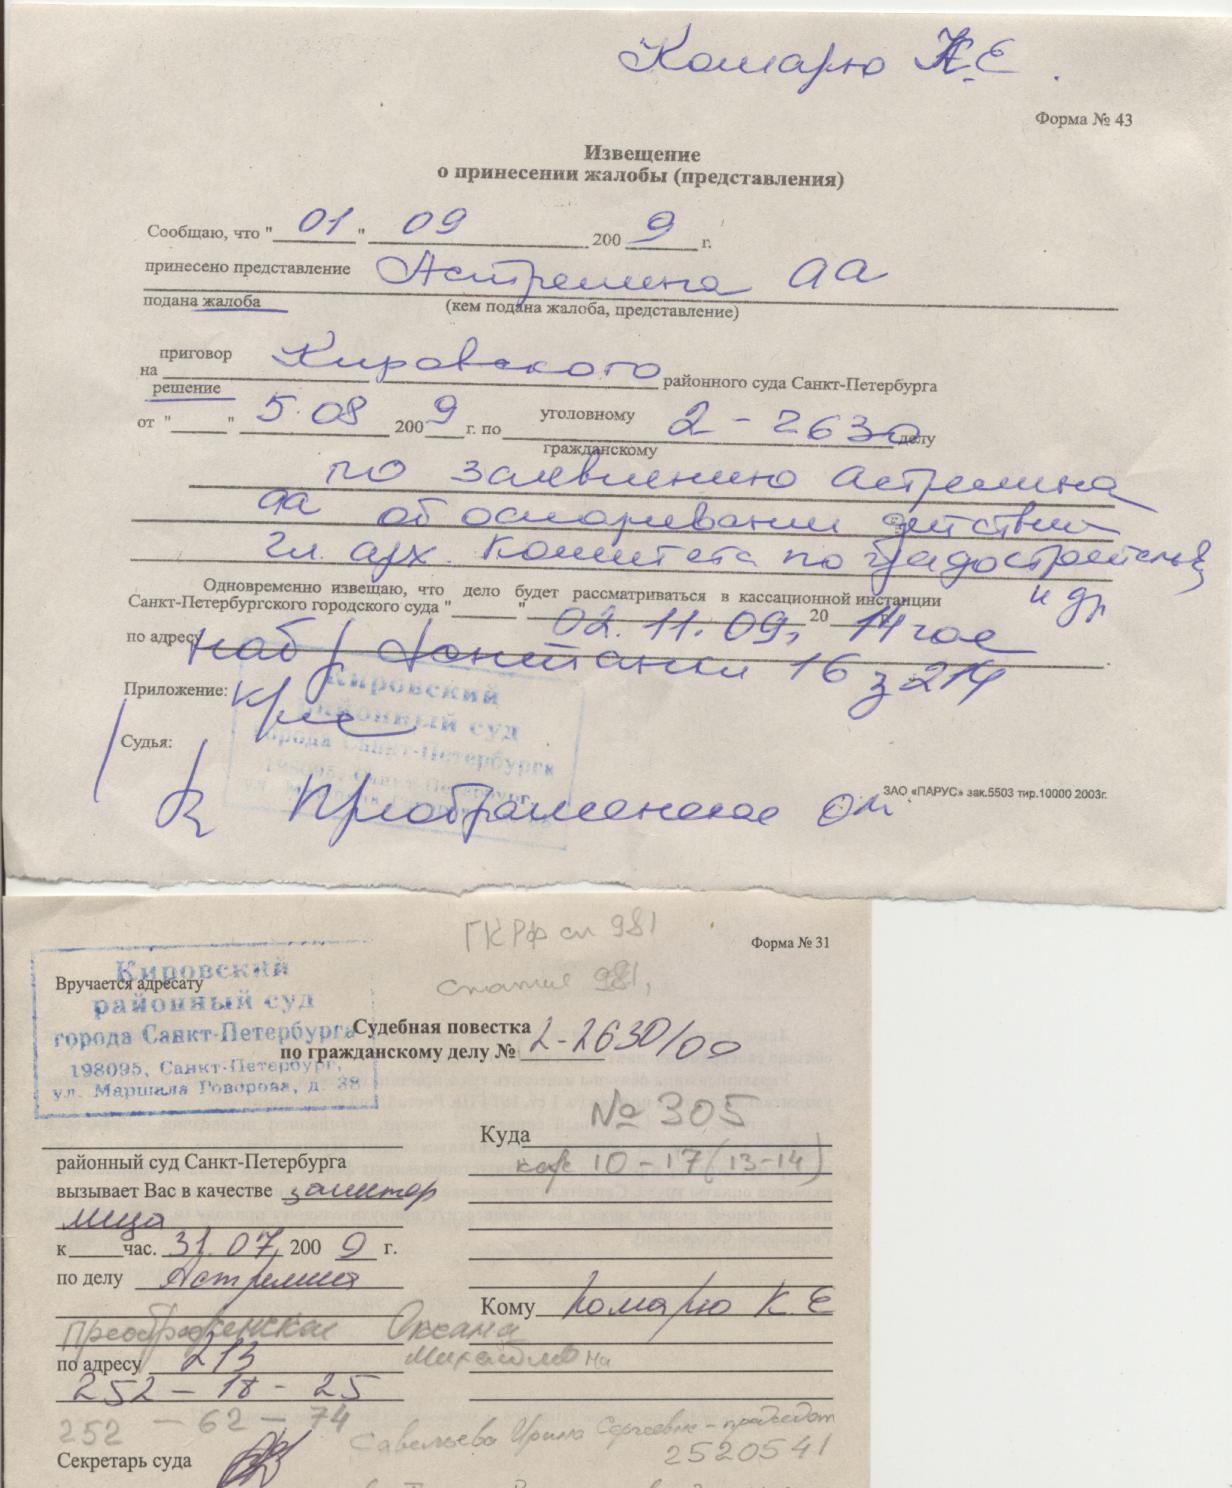 Комарю К.Е.
Форма № 43
Извещение
о принесении жалобы (представления)
Сообщаю, что "01" 09 2009 г.
принесено представление Астремина АА
подана жалоба (кем подана жалоба, представление)
приговор
на Кировского районного суда Санкт-Петербурга
решение
от "____" 5.08 2009 г. по уголовному 2-2630 делу
гражданскому
по заявлению Астремина
АА об оспаривании действий
гл. арх. Комитета по градостроительству
и др
Одновременно извещаю, что дело будет рассматриваться в кассационной инстанции
Санкт-Петербургского городского суда "____" 02.11.09, 20 14 час
по адресу наб р Фонтанки 16 з 214
Приложение:
Кировский
районный суд
города Санкт-Петербурга
198095, Санкт-Петербург,
Судья:
Преображенская ОМ
ЗАО «ПАРУС» зак.5503 тир.10000 2003г.
ГК РФ ст 981
Форма № 31
статья 981,
Вручается адресату
Кировский
районный суд
города Санкт-Петербурга
198095, Санкт-Петербург,
ул. Маршала Говорова, д. 38
Судебная повестка
по гражданскому делу № 2-2630/09
районный суд Санкт-Петербурга
вызывает Вас в качестве заинтер
лица
к ____ час. 31.07 2009 г.
по делу Астремина
Преображенская Оксана
Михайловна
по адресу 213
252-18-25
252-62-74
Секретарь суда
Куда № 305
каб 10-17 (13-14)
Кому Комарю К Е
Савельева Ирина Сергеевна - председат
2520541